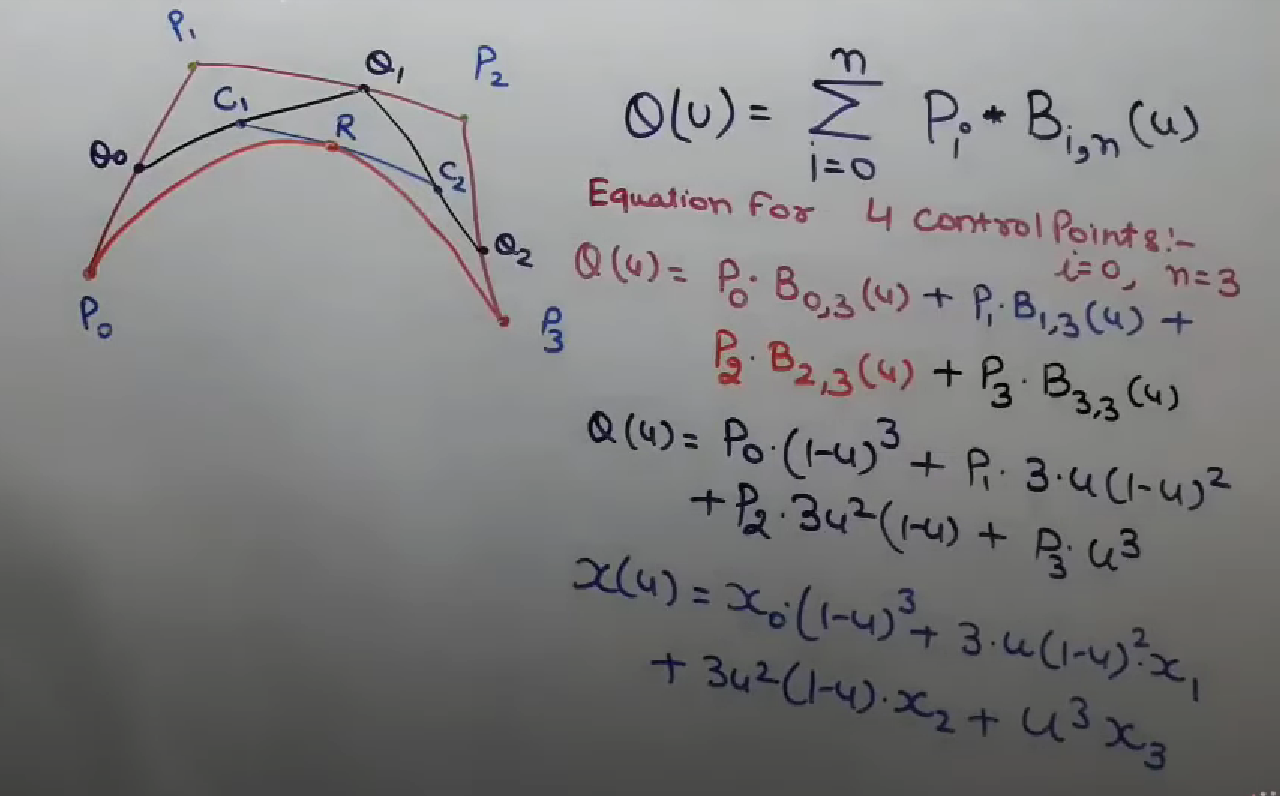 P₁
Q₁
P₂
C₁
R
Q₀
C₂
Q₂
P₀
P₃
Q(u) = n Σ i=0 Pᵢ * Bᵢ,ₙ(u)
Equation For 4 Control Points:-
i=0, n=3
Q(u) = P₀·B₀,₃(u) + P₁·B₁,₃(u) +
P₂·B₂,₃(u) + P₃·B₃,₃(u)
Q(u) = P₀·(1-u)³ + P₁·3·u(1-u)²
+ P₂·3u²(1-u) + P₃·u³
x(u) = x₀·(1-u)³ + 3·u(1-u)²·x₁
+ 3u²(1-u)·x₂ + u³x₃